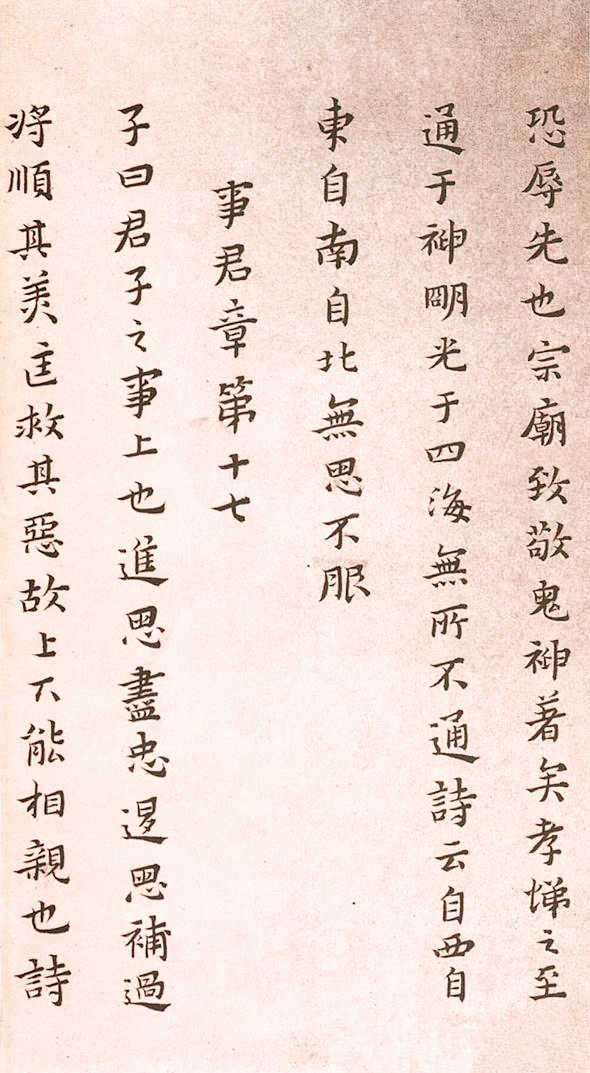 恐辱先也宗廟致敬鬼神著矣孝悌之至
通于神明光于四海無所不通詩云自西自
東自南自北無思不服
事君章第十七
子曰君子之事上也進思盡忠退思補過
將順其美匡救其惡故上下能相親也詩